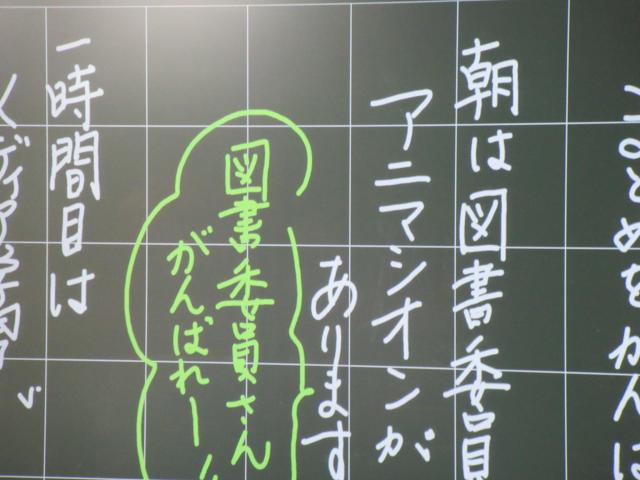 まとめをがんば
朝は図書委員
アニマシオンが
あります
図書委員さん
がんばれー!!
一時間目は
メディア学習